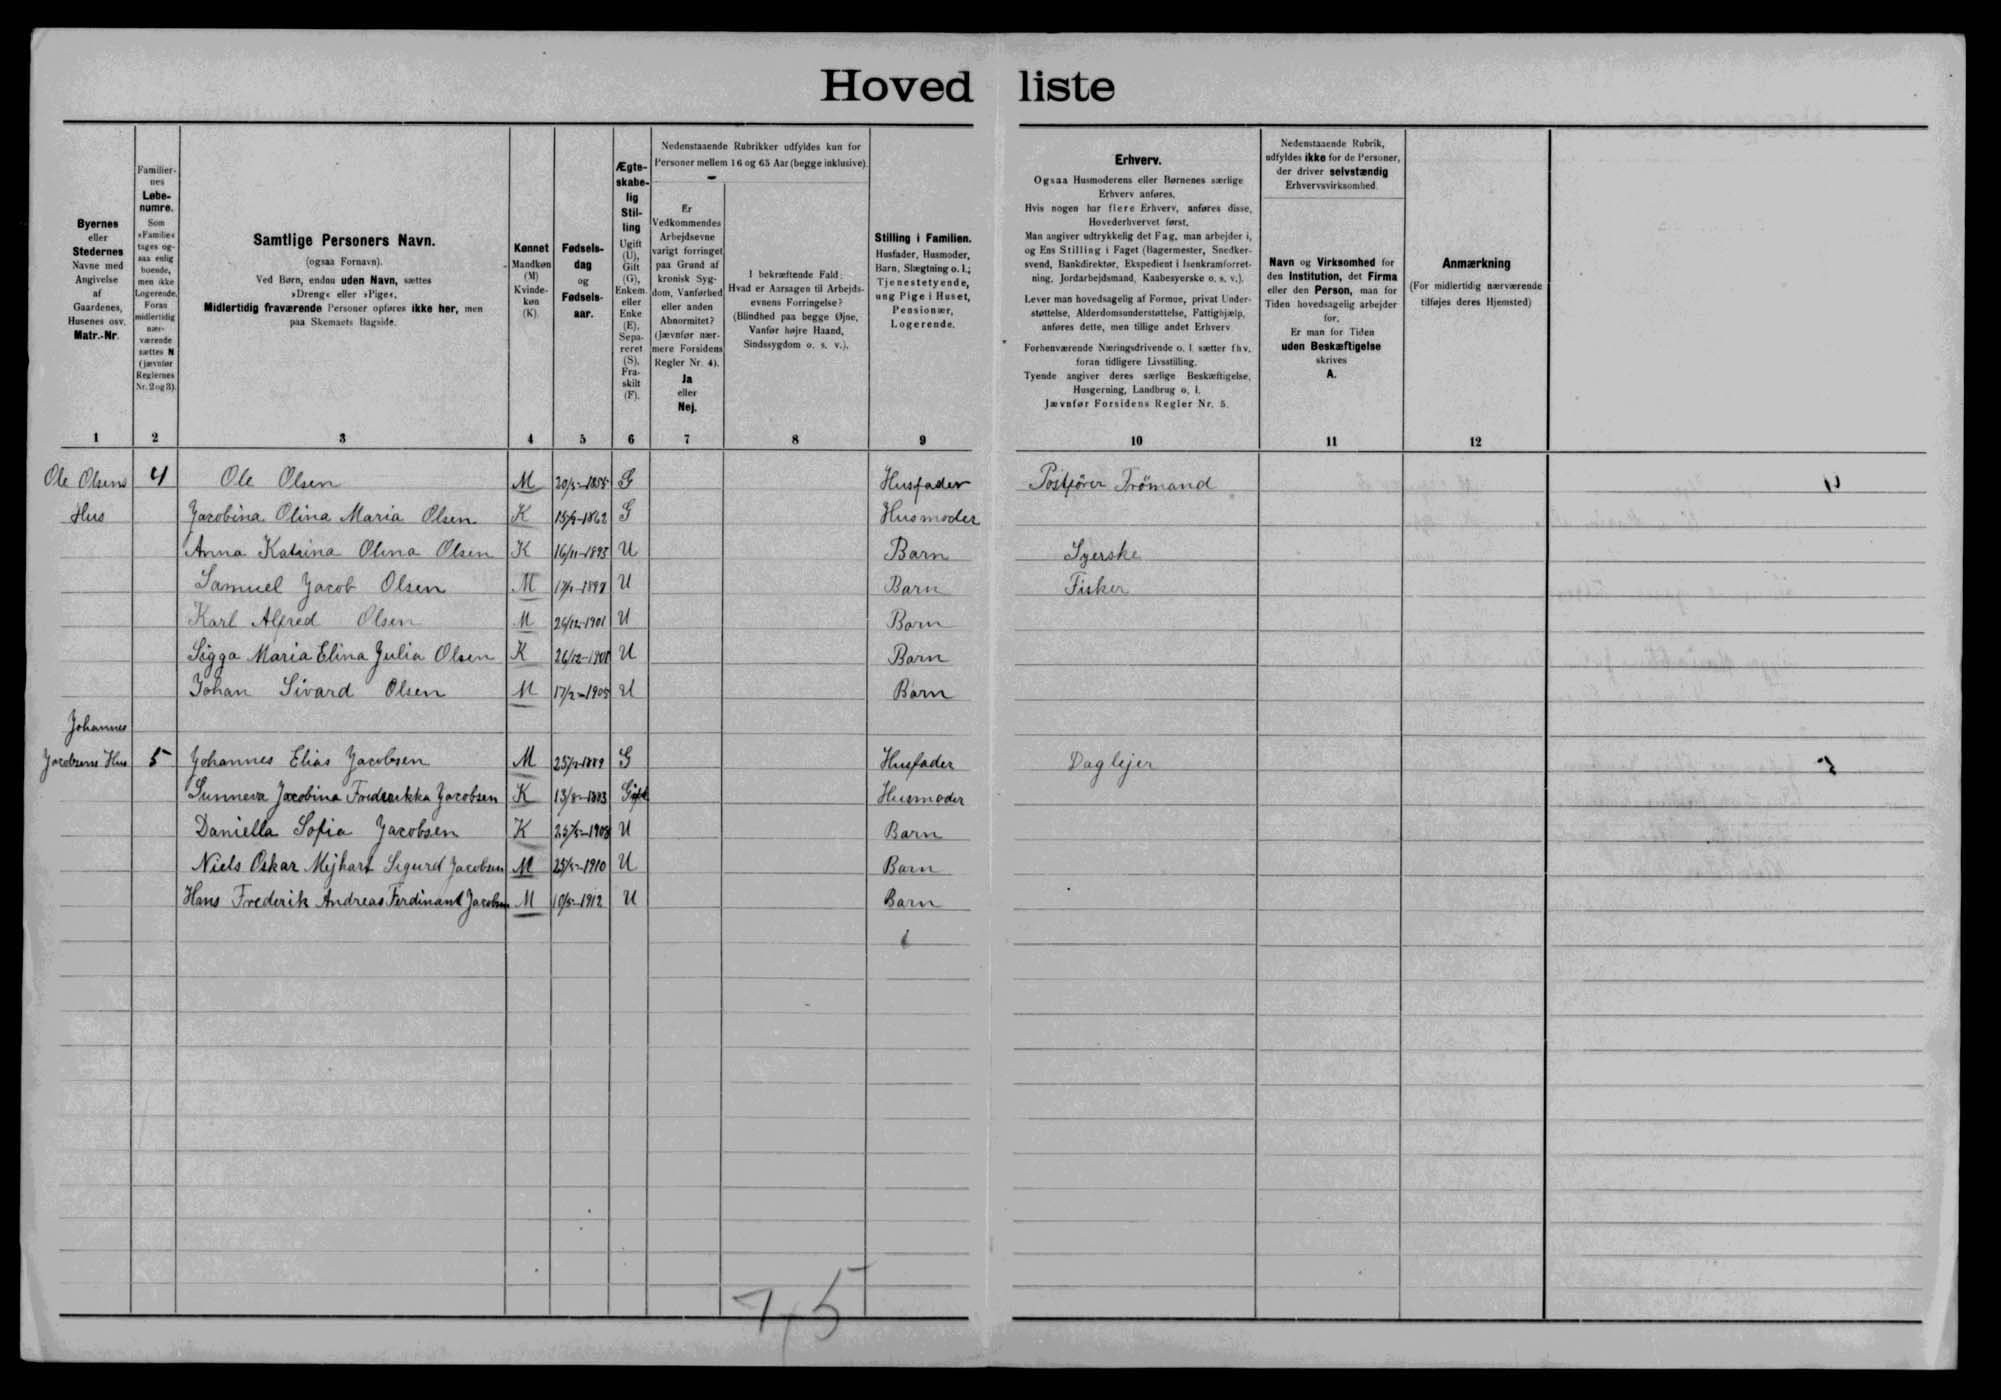 Hoved liste
Byernes
eller
Stedernes
Navne med
Angivelse
af
Gaardenes,
Husenes osv.
Matr.-Nr.
Familier-
nes
Løbe-
numre.
Som
»Familie«
tages og-
saa enlig
boende,
men ikke
Logerende.
Foran
midlertidig
nær-
værende
sættes N
(jævnfør
Reglernes
Nr. 2 og 3).
Samtlige Personers Navn.
(ogsaa Fornavn).
Ved Børn, endnu uden Navn, sættes
»Dreng« eller »Pige«,
Midlertidig fraværende Personer opføres ikke her, men
paa Skemaets Bagside.
Kønnet
Mandkøn
(M)
Kvinde-
køn
(K).
Fødsels-
dag
og
Fødsels-
aar.
Ægte-
skabe-
lig
Stil-
ling
Ugift
(U),
Gift
(G),
Enkem.
eller
Enke
(E).
Sepa-
reret
(S).
Fra-
skilt
(F).
Nedenstaaende Rubrikker udfyldes kun for
Personer mellem 16 og 65 Aar (begge inklusive).
Er
Vedkommendes
Arbejdsevne
varigt forringet
paa Grund af
kronisk Syg-
dom, Vanførhed
eller anden
Abnormitet?
(Jævnfør nær-
mere Forsidens
Regler Nr. 4).
Ja
eller
Nej.
I bekræftende Fald:
Hvad er Aarsagen til Arbejds-
evnens Forringelse?
(Blindhed paa begge Øjne,
Vanfør højre Haand,
Sindssygdom o. s. v.).
Stilling i Familien.
Husfader, Husmoder,
Barn, Slægtning o. l.;
Tjenestetyende,
ung Pige i Huset,
Pensionær,
Logerende.
Erhverv.
Ogsaa Husmoderens eller Børnenes særlige
Erhverv anføres.
Hvis nogen har flere Erhverv, anføres disse,
Hovederhvervet først.
Man angiver udtrykkelig det Fag, man arbejder i,
og Ens Stilling i Faget (Bagermester, Snedker-
svend, Bankdirektør, Ekspedient i Isenkramforret-
ning, Jordarbejdsmand, Kaabesyerske o. s. v.).
Lever man hovedsagelig af Formue, privat Under-
støttelse, Alderdomsunderstøttelse, Fattighjælp,
anføres dette, men tillige andet Erhverv
Forhenværende Næringsdrivende o. l. sætter fhv.
foran tidligere Livsstilling.
Tyende angiver deres særlige Beskæftigelse,
Husgerning, Landbrug o. l.
Jævnfør Forsidens Regler Nr. 5.
Nedenstaaende Rubrik,
udfyldes ikke for de Personer,
der driver selvstændig
Erhvervsvirksomhed.
Navn og Virksomhed for
den Institution, det Firma
eller den Person, man for
Tiden hovedsagelig arbejder
for.
Er man for Tiden
uden Beskæftigelse
skrives
A.
Anmærkning
(For midlertidig nærværende
tilføjes deres Hjemsted)
1 2 3 4 5 6 7 8 9 10 11 12
Ole Olsens 4 Ole Olsen M 20/5-1855 G Husfader Postförer Trömand
Hus Jacobina Olina Maria Olsen K 15/9-1862 G Husmoder
Anna Katrina Olina Olsen K 16/11-1893 U Barn Syerske
Samuel Jacob Olsen M U Barn Fisker
Karl Alfred Olsen M 26/12-1901 U Barn
Sigga Maria Elina Julia Olsen K 26/12-1901 U Barn
Johan Sivard Olsen M 17/2-1905 U Barn
Johannes
Jacobsens Hus 5 Johannes Elias Jacobsen M G Husfader Daglejer 5
Sunneva Jacobina Fredrikka Jacobsen K 13/8-1883 Gift Husmoder
Daniella Sofia Jacobsen K U Barn
Niels Oskar Mejhart Sigurd Jacobsen M 25/5-1910 U Barn
Hans Frederik Andreas Ferdinant Jacobsen M 10/5-1912 U Barn
7/5